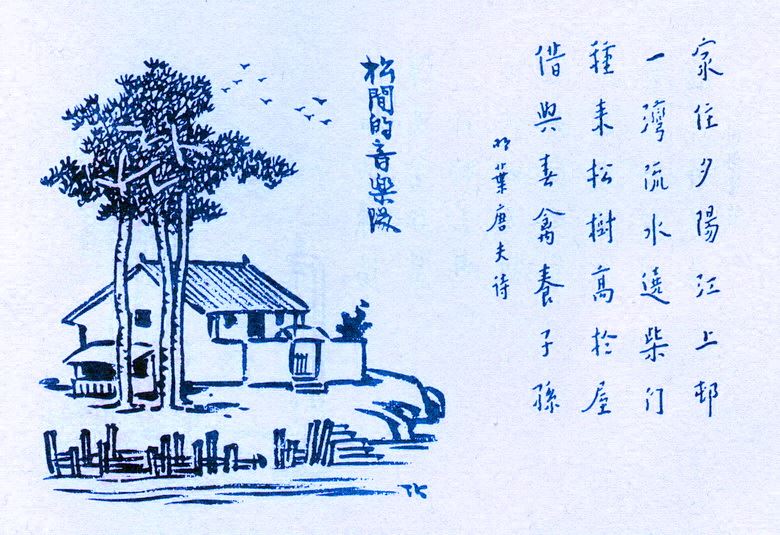 家住夕陽江上邨
一灣流水遶柴門
種來松樹高於屋
借與春禽養子孫
明葉唐夫詩
松間的音樂隊
TK